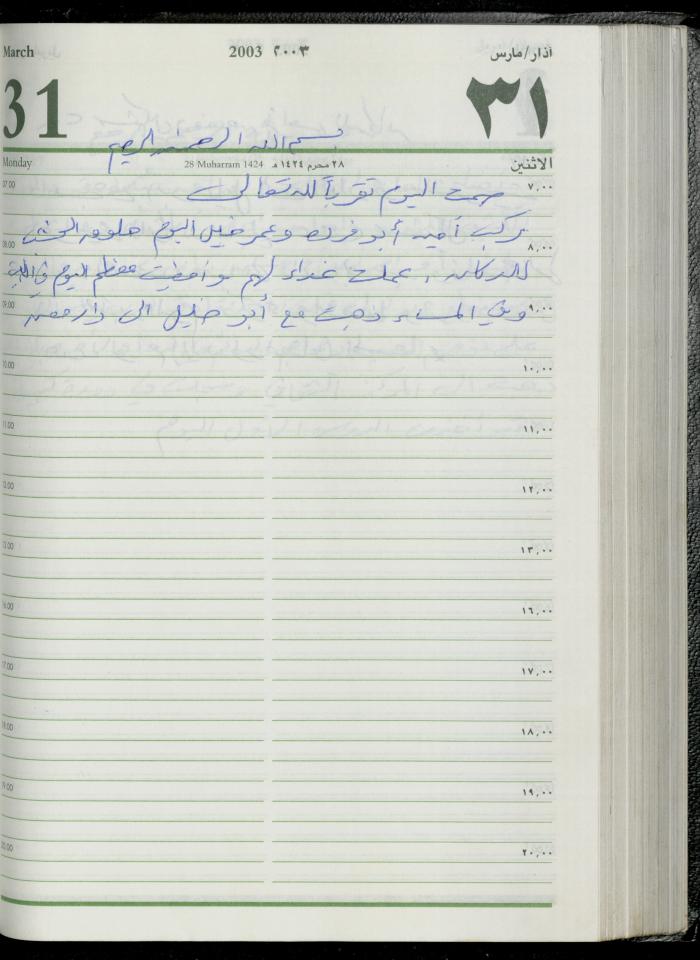 March 2003 ٢٠٠٣ آذار/مارس
31 ٣١
بسم الله الرحمن الرحيم
Monday 28 Muharram 1424 ٢٨ محرم ١٤٢٤ هـ الاثنين
07.00 ٧,٠٠
صمت اليوم تقرباً لله تعالى
ركب أمين أبو فرحه وعمر خليل اليوم حلوق
08.00 ٨,٠٠
للدكان، عملت غداء لهم وأمضيت معظم اليوم في
09.00 ٩,٠٠
وفي المساء ذهبت مع أبو خليل الى دار
10.00 ١٠,٠٠
11.00 ١١,٠٠
12.00 ١٢,٠٠
13.00 ١٣,٠٠
16.00 ١٦,٠٠
17.00 ١٧,٠٠
18.00 ١٨,٠٠
19.00 ١٩,٠٠
20.00 ٢٠,٠٠